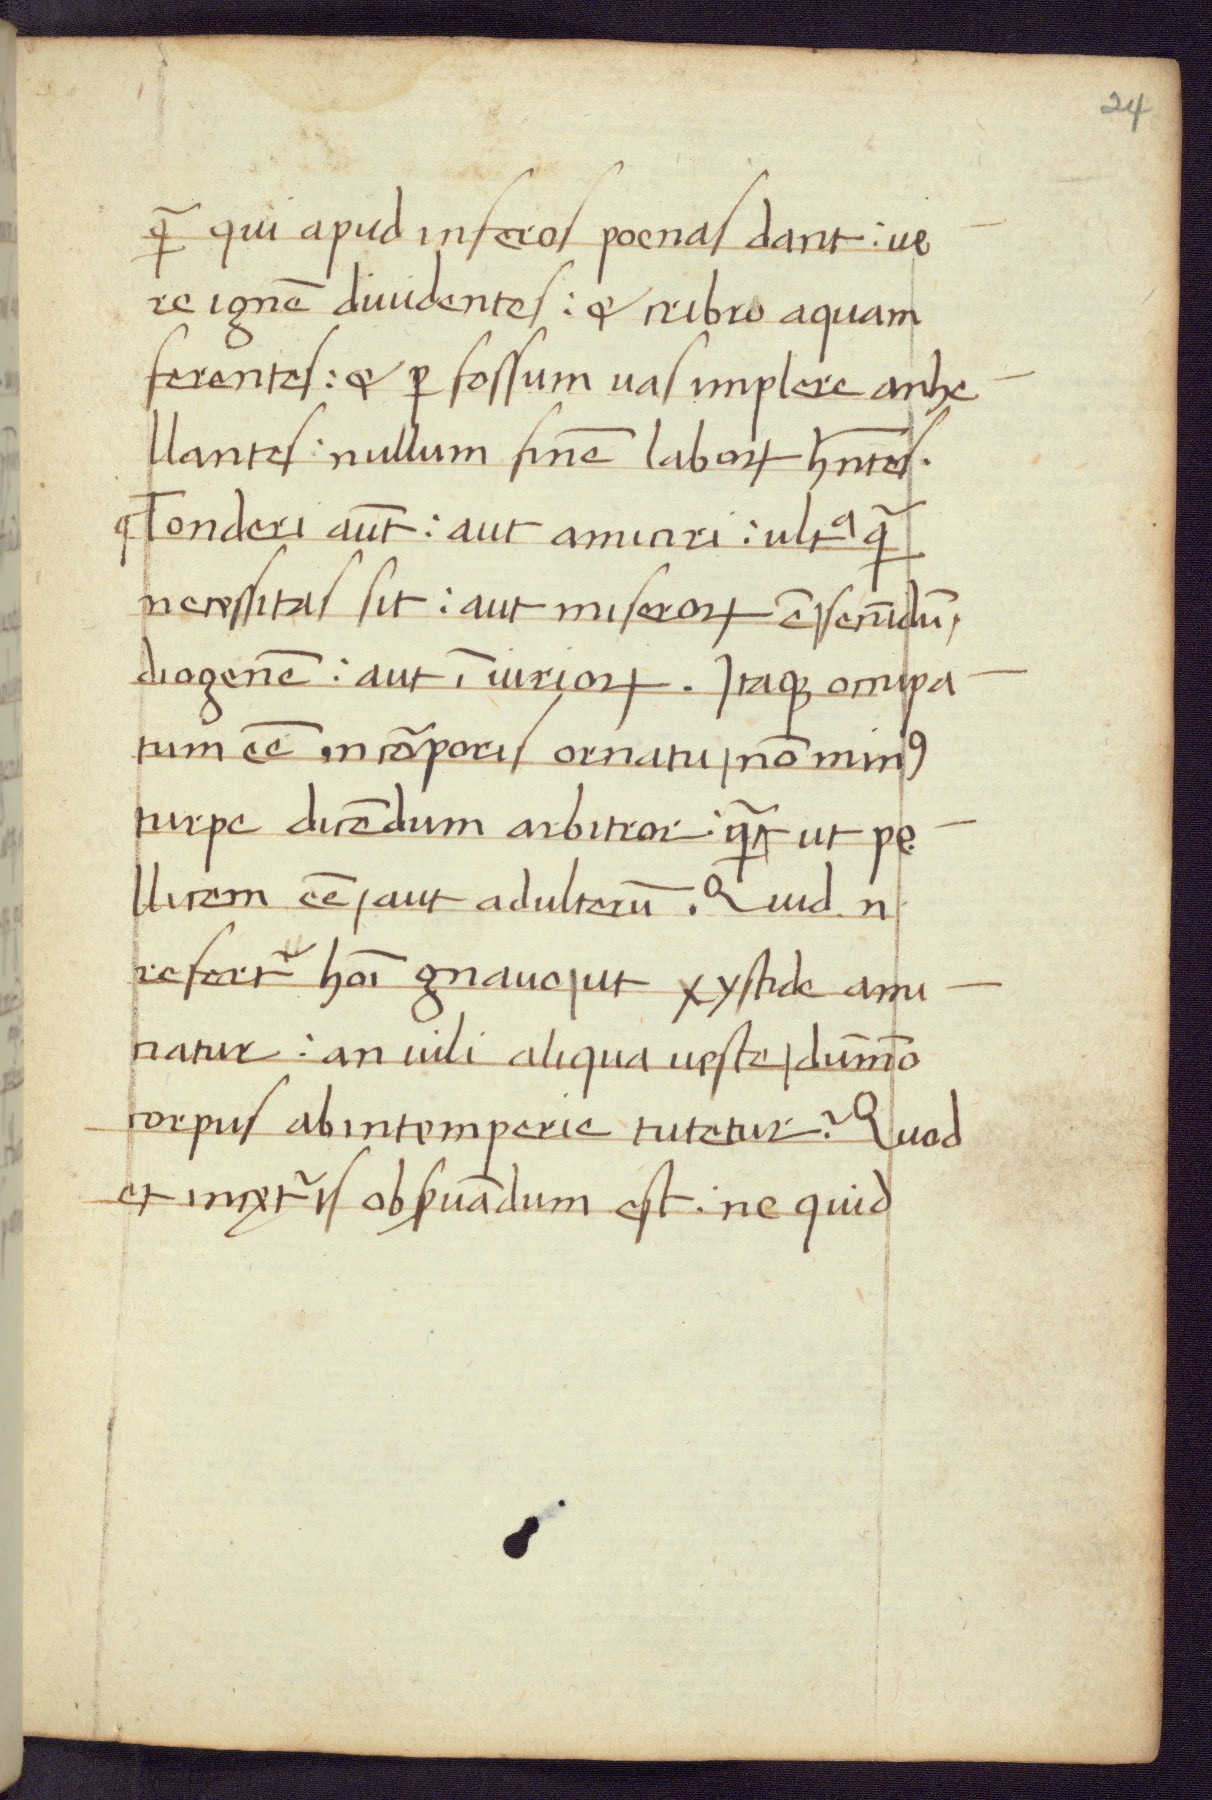 24
q̃ qui apud inferos poenas dant : ue —
re ignē diuidentes : & cribro aquam
ferentes : & ꝑ fossum uas implere anhe —
llantes : nullum finē laboꝝ hn̄tes .
Tonderi aūt : aut amiciri : ultᵃ q̃
necessitas sit : aut miseroꝝ ē / secūdū ,
diogenē : aut īiurioꝝ . Itaqꝫ occupa —
tum eē in cōporis ornatu / nō minꝰ
turpe dicēdum arbitror : q̃ ut pe —
llicem eē / aut adulterū . Quid n̄
refert̃ hoī gnauo / ut xystide ami —
ciatur : an uili aliqua ueste / dūmō
corpus ab intemperie tutetur ? Quod
et in cęt̃is obẜuādum est : ne quid